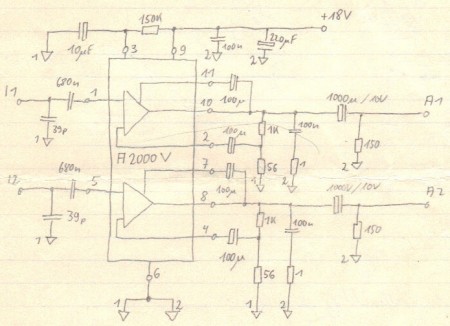 150K
+18V
10µF
3
9
100n
220µF
1
2
2
11
680n
100µ
I1
1
10
1000µ/10V
A1
39p
2
100µ
1K
100n
150
680n
A2000V
7
56
1
1
I2
5
100µ
1
2
2
8
1000µ/10V
A2
39p
4
1K
100n
150
1
100µ
2
56
1
6
1
2
1
2